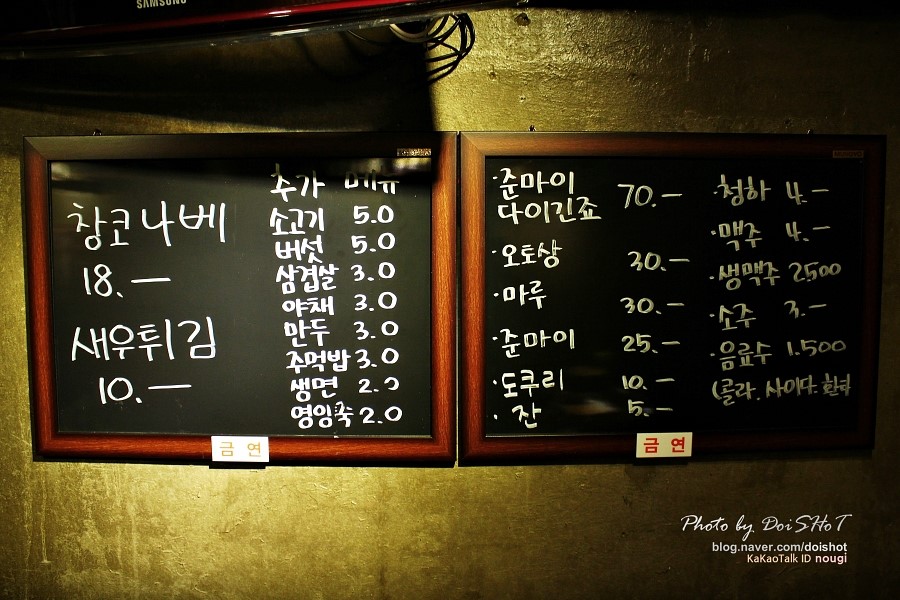 SAMSUNG
창코나베
18.—
새우튀김
10.—
추가 메뉴
소고기 5.0
버섯 5.0
삼겹살 3.0
야채 3.0
만두 3.0
주먹밥 3.0
생면 2.0
영양죽 2.0
금연
·준마이
다이긴죠 70.—
·오토상 30.—
·마루 30.—
·준마이 25.—
·도쿠리 10.—
·잔 5.—
·청하 4.—
·맥주 4.—
·생맥주 2,500
·소주 3.—
·음료수 1.500
(콜라. 사이다. 환타
금연
Photo by DoiSHoT
blog.naver.com/doishot
KaKaoTalk ID nougi